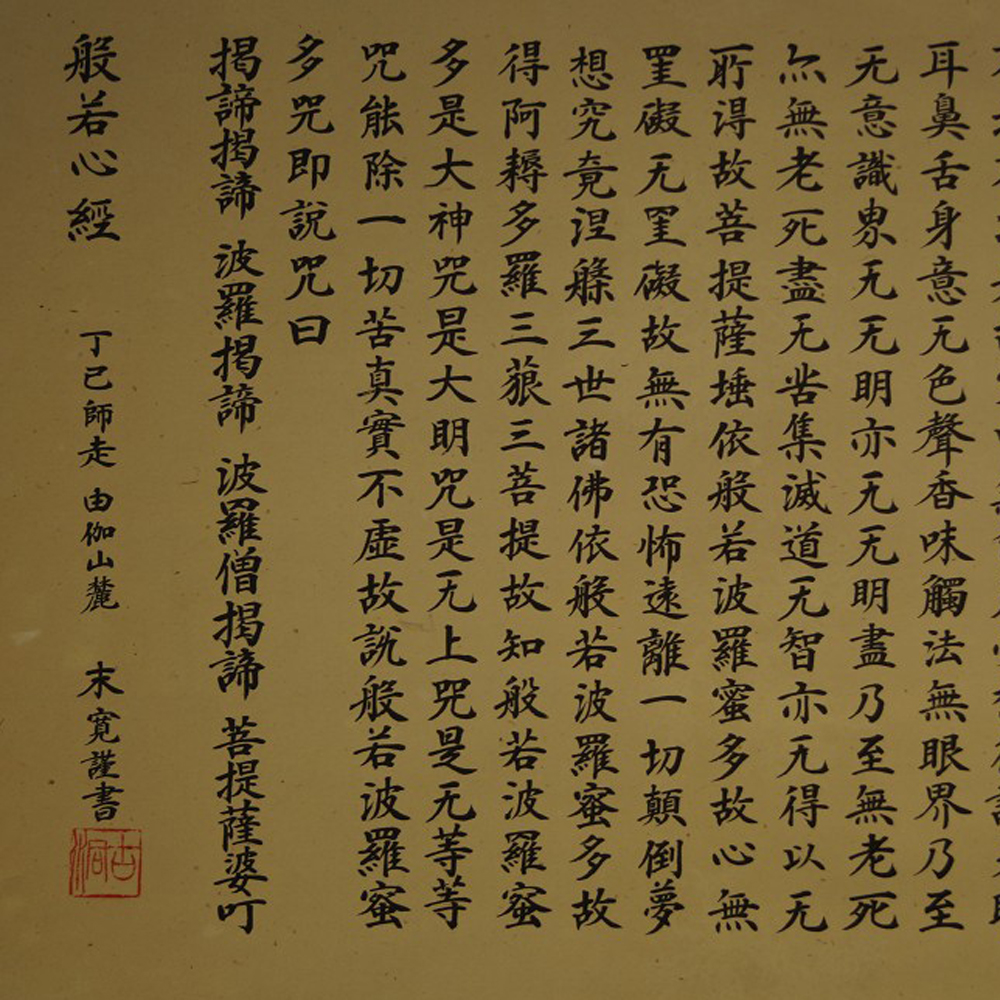 耳鼻舌身意无色聲香味觸法無眼界乃至
无意識界无无明亦无无明盡乃至無老死
亦無老死盡无苦集滅道无智亦无得以无
所得故菩提薩埵依般若波羅蜜多故心無
罣礙无罣礙故無有恐怖遠離一切顛倒夢
想究竟涅槃三世諸佛依般若波羅蜜多故
得阿耨多羅三藐三菩提故知般若波羅蜜
多是大神咒是大明咒是无上咒是无等等
咒能除一切苦真實不虛故説般若波羅蜜
多咒即說咒曰
揭諦揭諦 波羅揭諦 波羅僧揭諦 菩提薩婆吖
般若心經 丁己師走 由伽山麓 末寛謹書